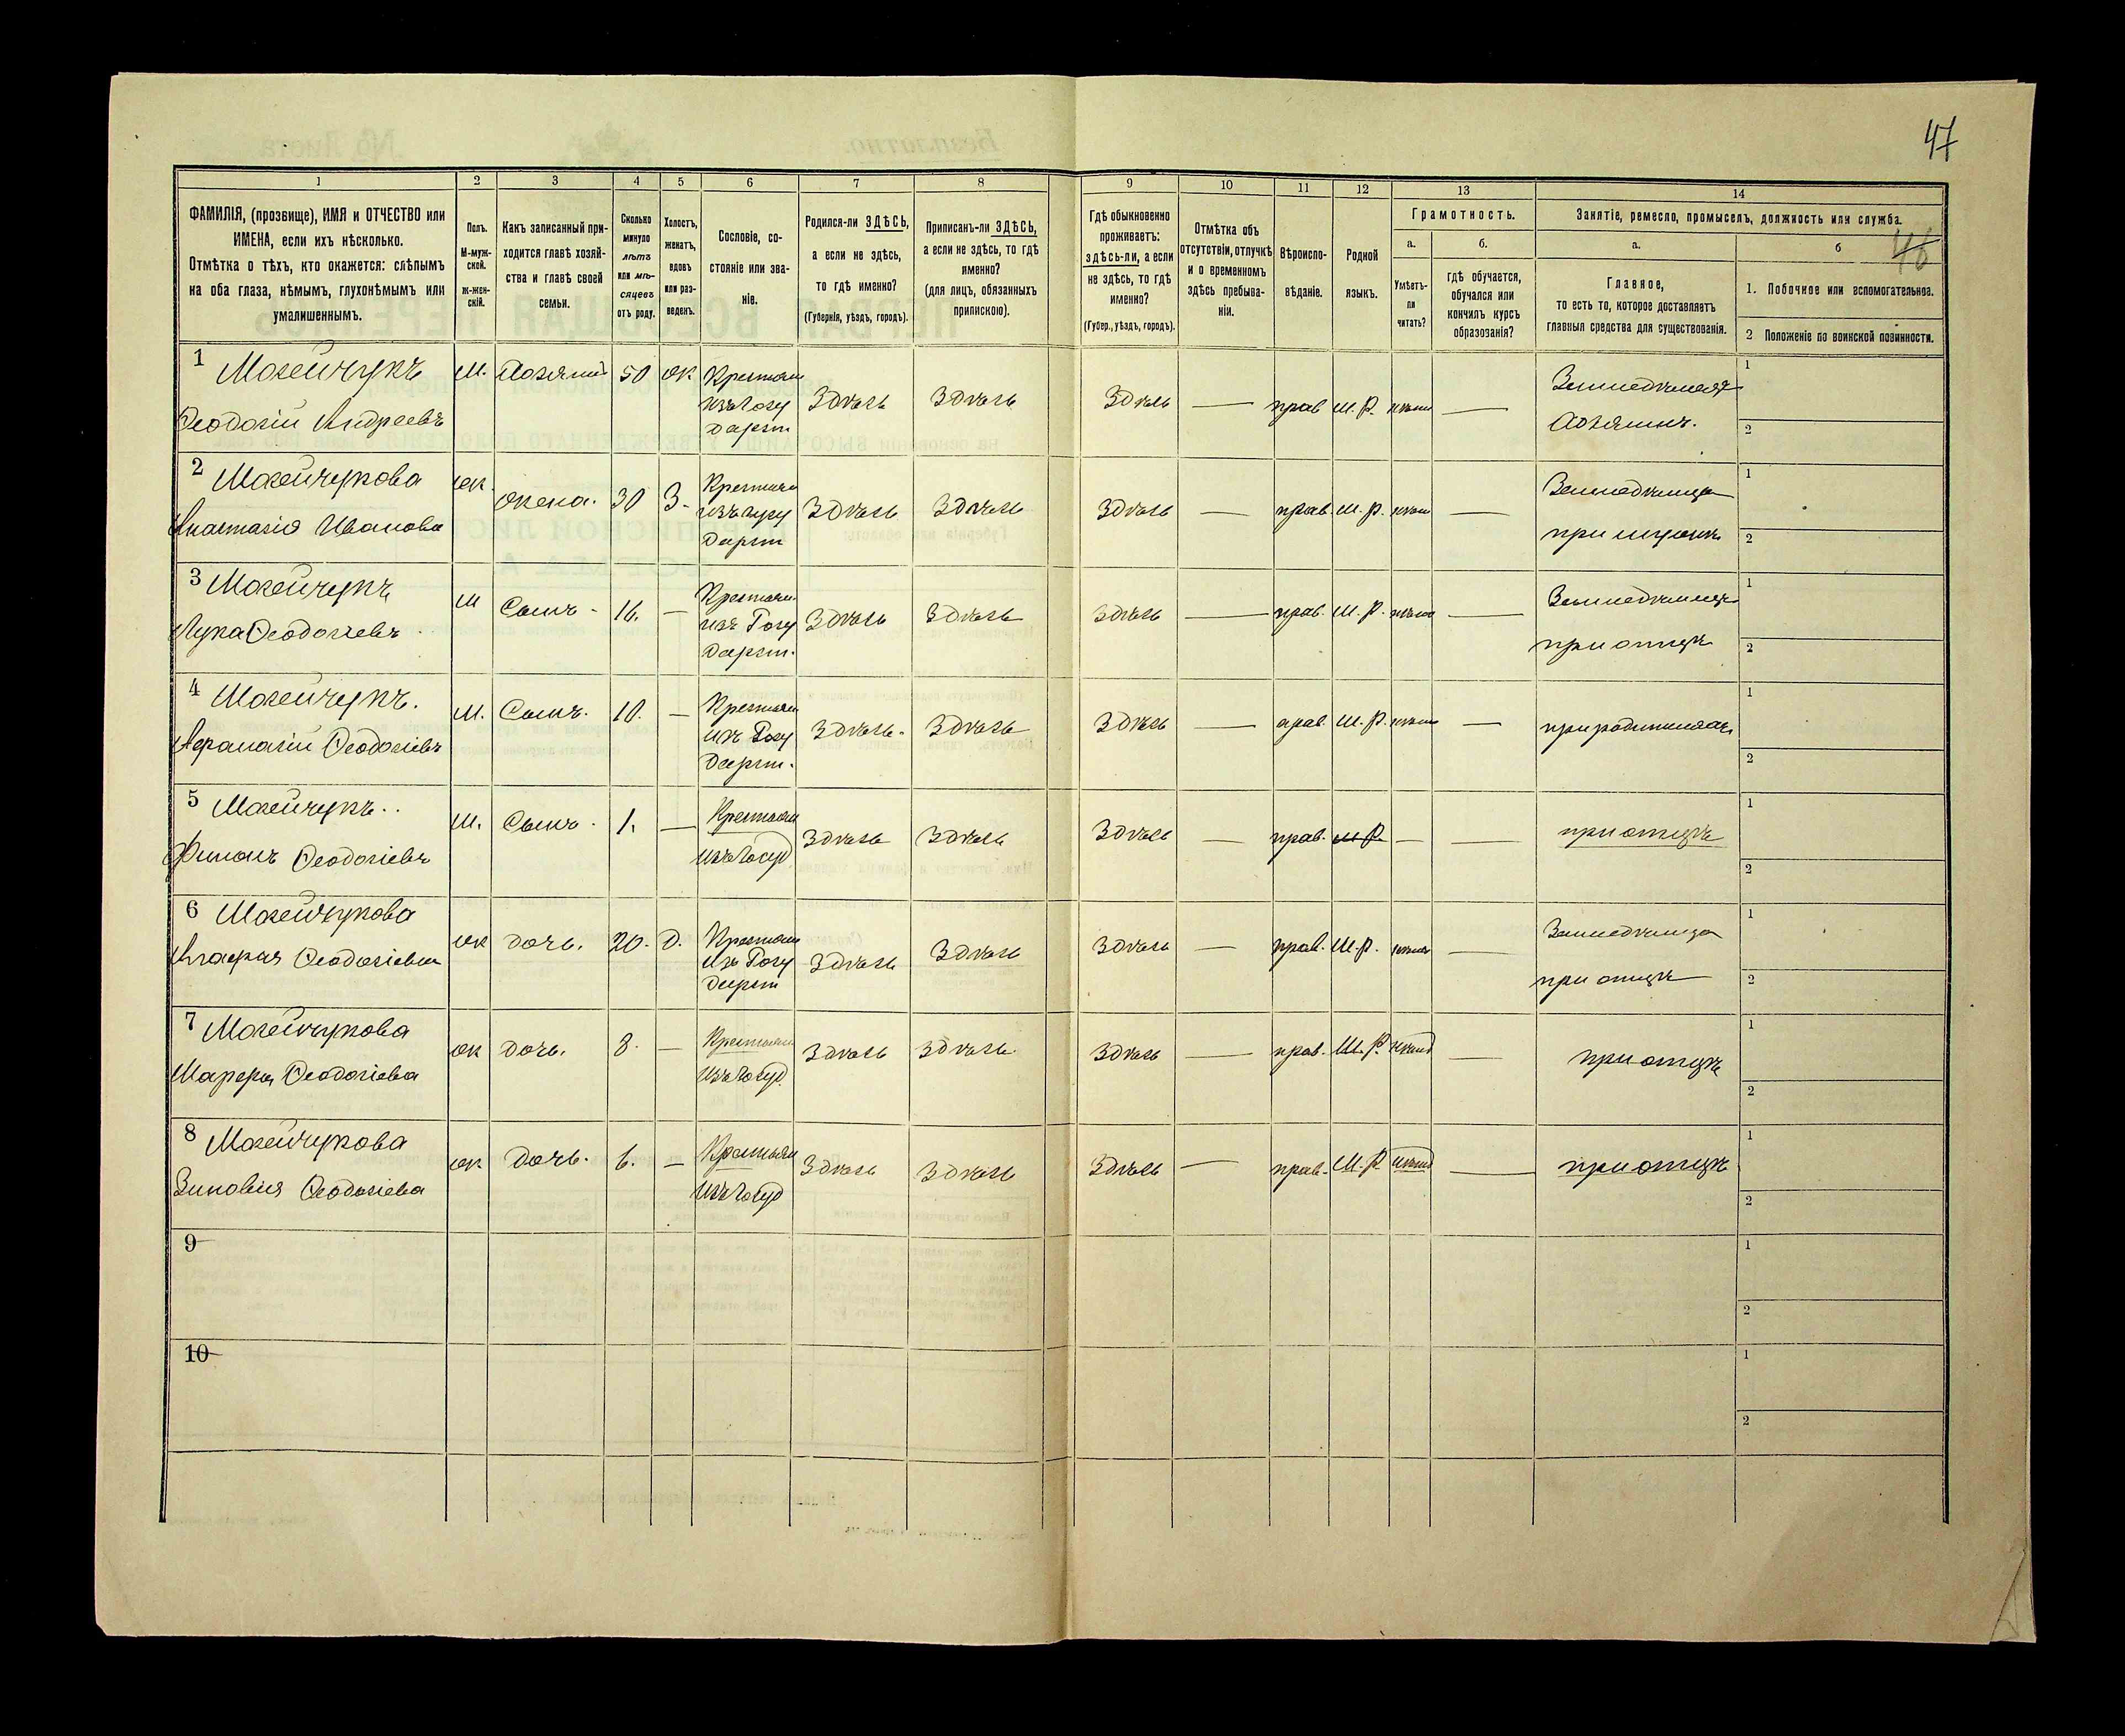 47
1 2 3 4 5 6 7 8 9 10 11 12 13 14
ФАМИЛІЯ, (прозвище), ИМЯ и ОТЧЕСТВО или
ИМЕНА, если ихъ нѣсколько.
Отмѣтка о тѣхъ, кто окажется: слѣпымъ
на оба глаза, нѣмымъ, глухонѣмымъ или
умалишеннымъ.
Полъ.
М-муж-
ской.
Ж-жен-
скій.
Какъ записанный при-
ходится главѣ хозяй-
ства и главѣ своей
семьи.
Сколько
минуло
лѣтъ
или мѣ-
сяцевъ
отъ роду.
Холостъ,
женатъ,
вдовъ
или раз-
веденъ.
Сословіе, со-
стояніе или зва-
ніе.
Родился-ли ЗДѢСЬ,
а если не здѣсь,
то гдѣ именно?
(Губернія, уѣздъ, городъ).
Приписанъ-ли ЗДѢСЬ,
а если не здѣсь, то гдѣ
именно?
(для лицъ, обязанныхъ
припискою).
Гдѣ обыкновенно
проживаетъ:
здѣсь-ли, а если
не здѣсь, то гдѣ
именно?
(Губер., уѣздъ, городъ).
Отмѣтка объ
отсутствіи, отлучкѣ
и о временномъ
здѣсь пребыва-
ніи.
Вѣроиспо-
вѣданіе.
Родной
языкъ.
Грамотность.
а.
Умѣетъ-
ли
читать?
б.
Гдѣ обучается,
обучался или
кончилъ курсъ
образованія?
Занятіе, ремесло, промыселъ, должность или служба.
46
а.
Главное,
то есть то, которое доставляетъ
главныя средства для существованія.
б
1. Побочное или вспомогательное.
2 Положеніе по воинской повинности.
1 Можейчукъ М. Хозяинъ 50 ж Крестьян Здѣсь Здѣсь Здѣсь — прав М. Р. — Земледѣлецъ 1
Ѳеодосій Андреевъ изъ Госу
дарст Хозяинъ. 2
2 Можейчукова ж. жена. 30 З. Крестьян Здѣсь Здѣсь Здѣсь — прав. М. Р. — Земледѣлица 1
Анастасія Иванова изъ Госу
дарст при мужѣ 2
3 Можейчукъ М Сынъ - 16. — Крестьян. Здѣсь Здѣсь Здѣсь — прав. М. Р. — 1
Лука Ѳеодосіевъ изъ Госу
дарст. при отцѣ 2
4 Можейчукъ. М. Сынъ. 10. — Крестьян Здѣсь. Здѣсь Здѣсь — прав. М. Р. — при родителяхъ 1
Афанасій Ѳеодосіевъ изъ Госу
дарст. 2
5 Можейчукъ.. М. Сынъ. 1. — Крестьян Здѣсь Здѣсь Здѣсь — прав. М. Р. — — при отцѣ 1
Филонъ Ѳеодосіевъ изъ Госуд 2
6 Можейчукова ж дочь. 20. Д. Крестьян Здѣсь Здѣсь Здѣсь — прав. М. Р. — Земледѣлица 1
Ѳеодосіева Изъ Госу
дарст при отцѣ 2
7 Можейчукова ж дочь. 8. — Крестьян Здѣсь Здѣсь. Здѣсь — прав. М. Р. — при отцѣ 1
Ѳеодосіева изъ Госуд. 2
8 Можейчукова ж. Дочь. 6. — Крестьян Здѣсь Здѣсь Здѣсь — прав. М. Р. — при отцѣ 1
Зиновія Ѳеодосіева изъ Госуд 2
9 1
2
10 1
2